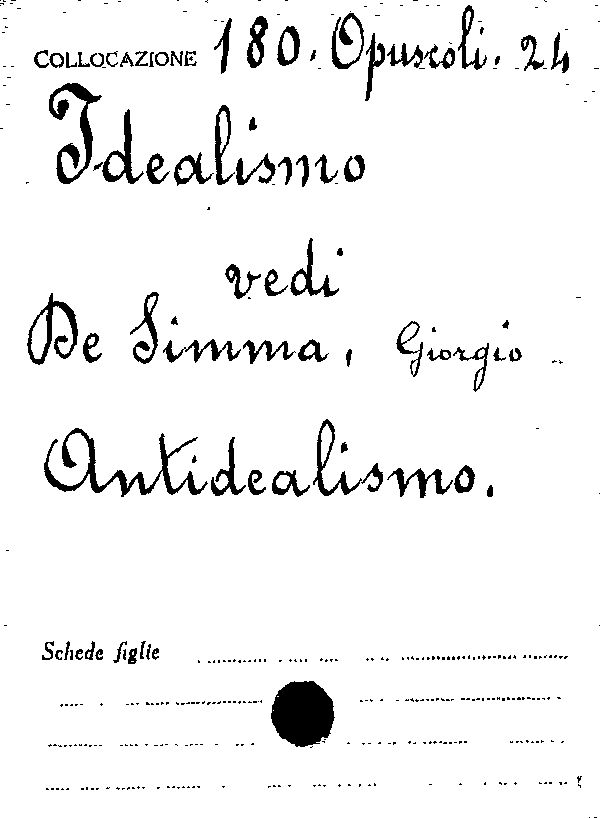 COLLOCAZIONE 180. Opuscoli. 24
Idealismo
vedi
De Simma, Giorgio
Antidealismo.
Schede figlie